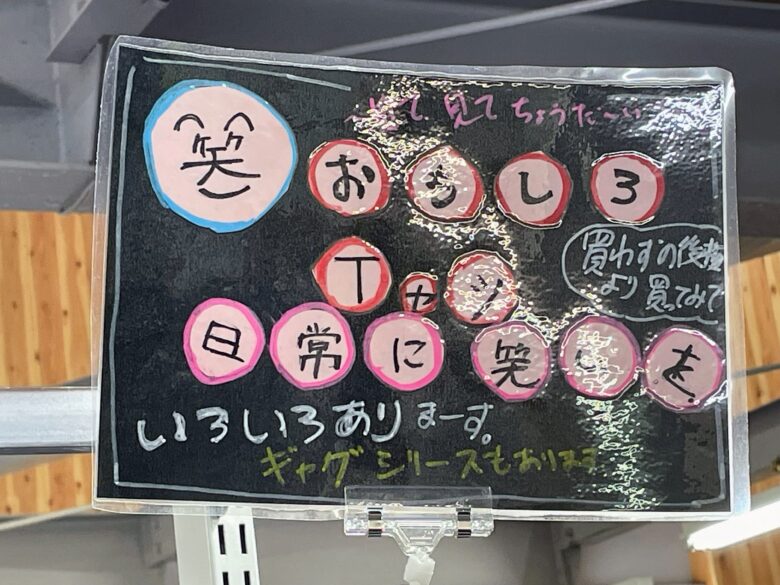 笑
見てちょうだ〜い
おもしろ
Tャツ
買わずの後悔
より買ってみて
日常に笑いを
いろいろありまーす。
ギャグシリーズもあります